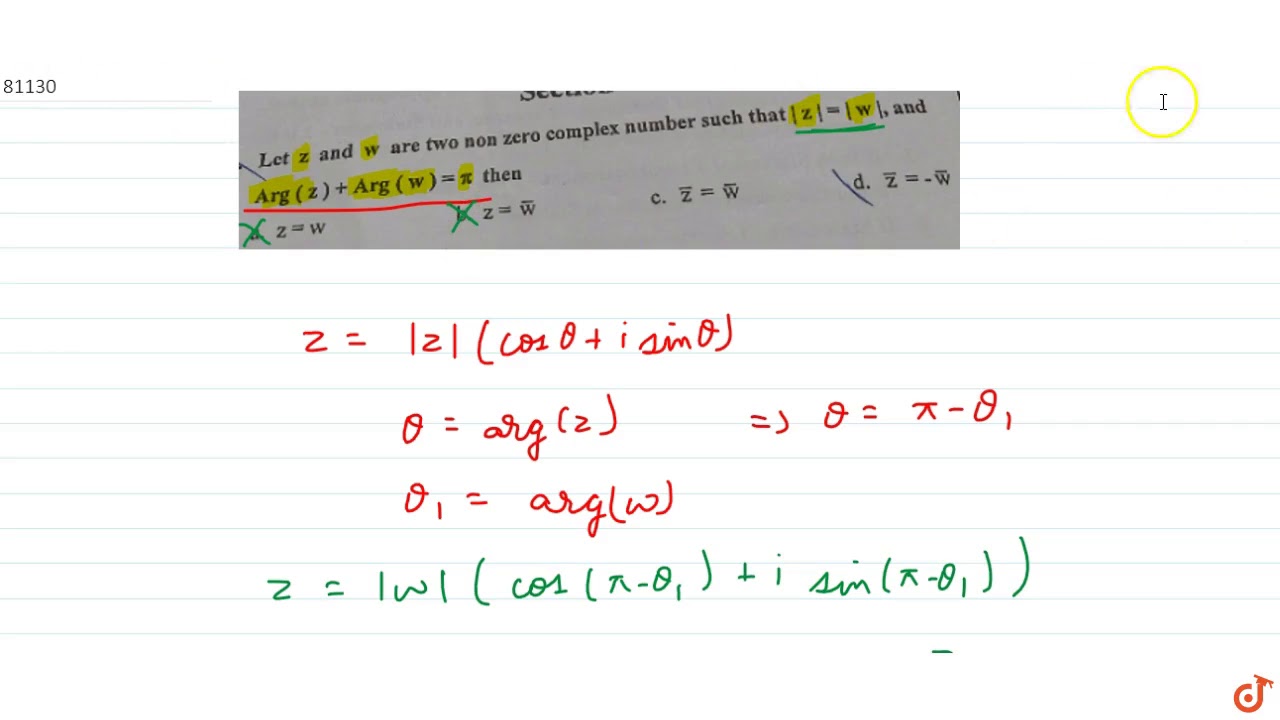 81130
Let z and w are two non zero complex number such that |z|=|w|, and
Arg(z)+Arg(w)=π then
z=w z=w̄ c. z̄ = w̄ d. z̄ = -w̄
z = |z| (cosθ + i sinθ)
θ = arg(z) => θ = π-θ₁
θ₁ = arg(w)
z = |w| ( cos(π-θ₁) + i sin(π-θ₁) )